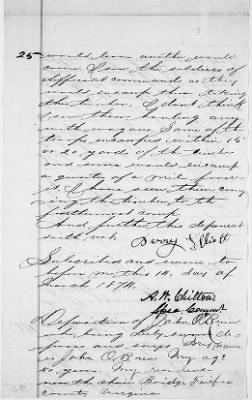 25 would leave another would
come. I saw the soldiers of
different commands as they
would encamp then taking
the timber. I don't think
I saw them hauling away
with wagons. Some of the
troops encamped within 15
or 20 yards of the timber
and some would encamp
a quarter of a mile from
it. I have seen them carry
ing the timber to the
camp
And further this deponent
saith not.
Berry Elliott
Subscribed and sworn to
before me this 14. day of
March 1874.
A. W. Chilton
Spec Commr
Deposition of John O'Brien
who being duly sworn de
poses and says. My name
is John O'Brien. My age
years. My residence
near the chain Bridge Fairfax
County Virginia